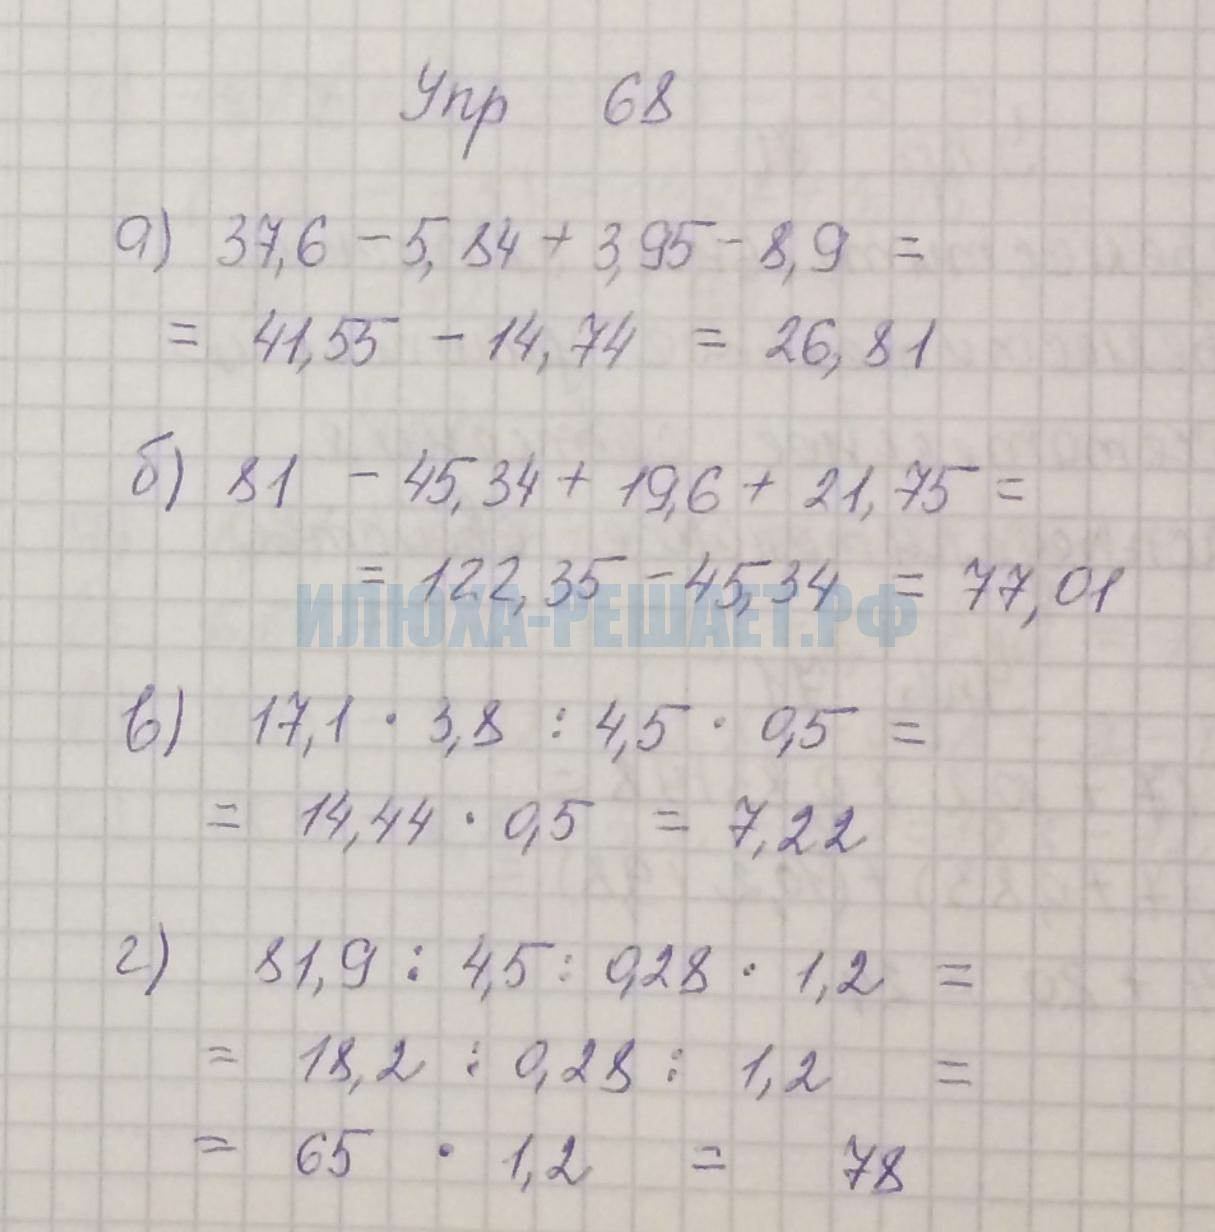 Упр 68
а) 37,6 - 5,84 + 3,95 - 8,9 =
= 41,55 - 14,74 = 26,81
б) 81 - 45,34 + 19,6 + 21,75 =
= 122,35 - 45,34 = 77,01
ИЛЮХА-РЕШАЕТ.РФ
в) 17,1 · 3,8 : 4,5 · 0,5 =
= 14,44 · 0,5 = 7,22
г) 81,9 : 4,5 : 0,28 · 1,2 =
= 18,2 : 0,28 : 1,2 =
= 65 · 1,2 = 78